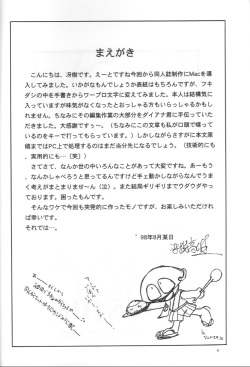 まえがき
こんにちは、冴樹です。えーとですね今回から同人誌制作にMacを導
入してみました。いかがなもんでしょうか表紙はもちろんですが、フキ
ダシの中を手書きからワープロ文字に変えてみました。本人は結構気に
入っていますが味気がなくなったとおっしゃる方もいらっしゃるかもし
れません。ちなみにその編集作業の大部分をダイアナ君に手伝っていた
だきました。大感謝ですぅ～。（ちなみにこの文章も私が口頭で喋って
いるのをキーで打ってもらっています。）しかしながらさすがに本文原
稿まではPC上で処理するのはまだ当分先になるでしょう。（技術的にも
、実用的にも…（笑））
さてさて、なんか世の中いろんなことがあって大変ですね。あーもう
、なんかしゃべろうと思ってるんですけど手ェ動かしながらなんでうま
く考えがまとまりませ～ん（泣）。また結局ギリギリまでウダウダやっ
ております。困ったもんです。
そんなワケで今回も突発的に作ったモノですが、お楽しみいただけれ
ば幸いです。
それでは…。
'98年8月某日